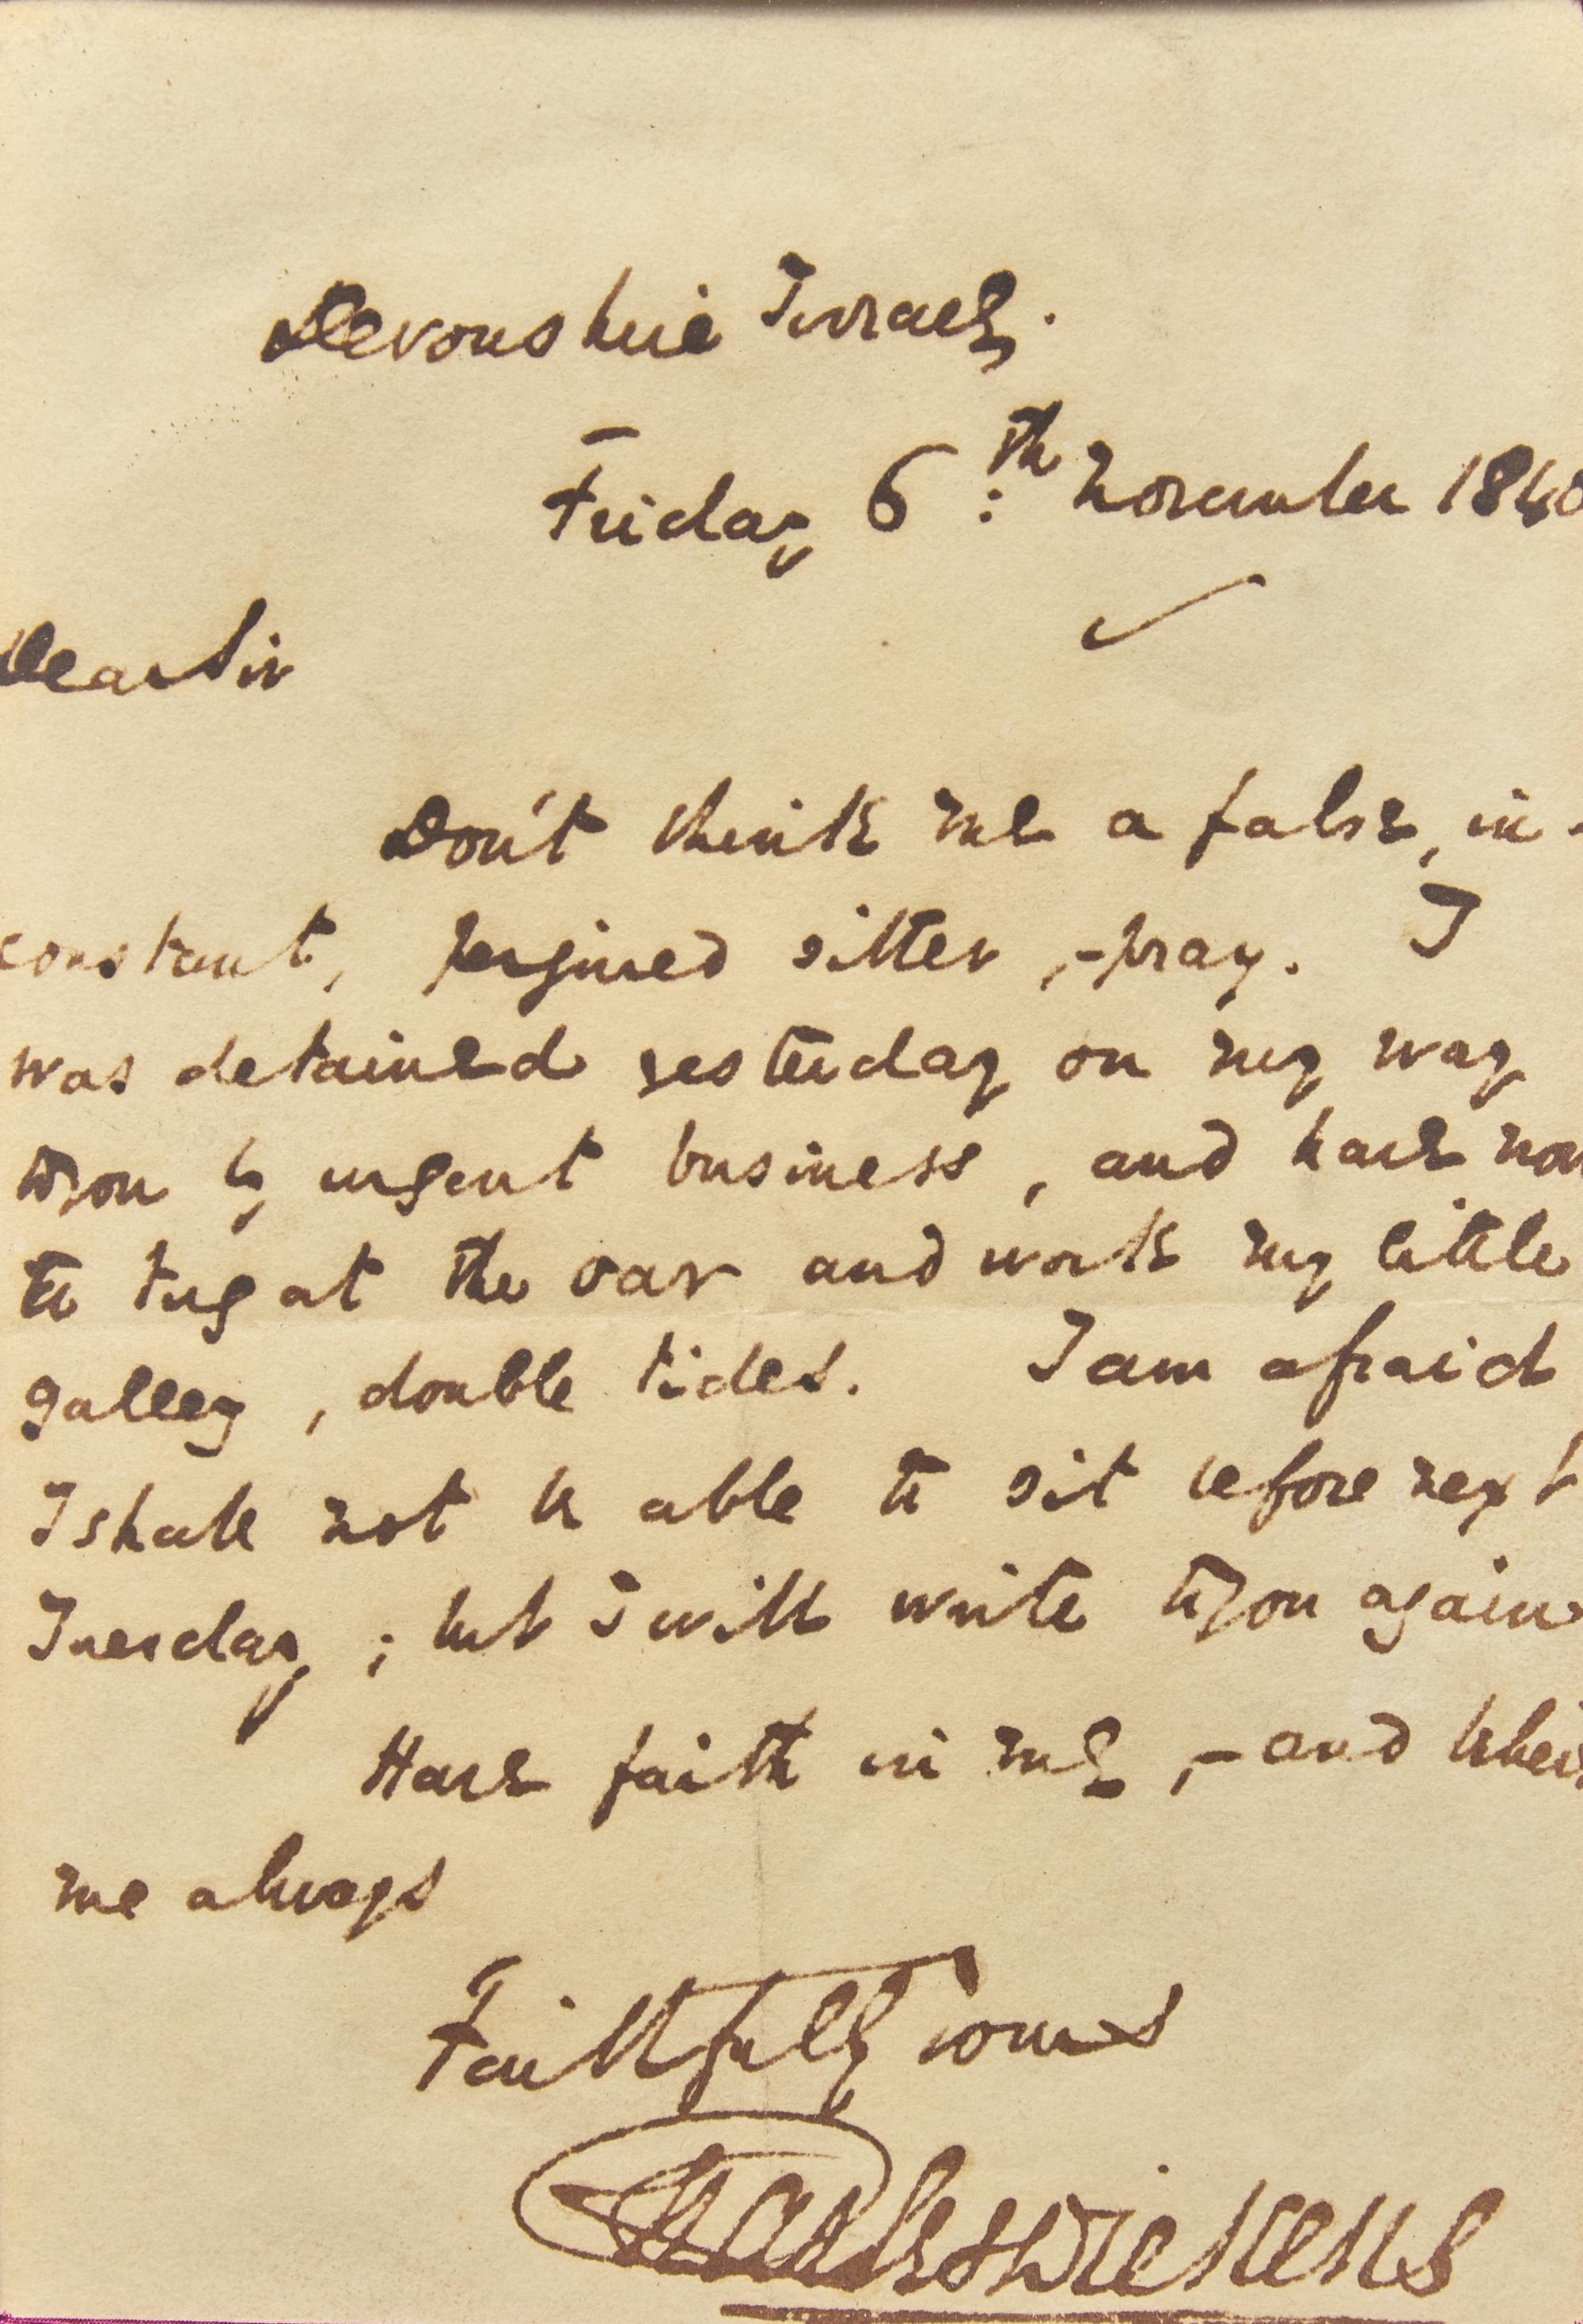 Devonshire Terrace.
Friday 6:th November 1840
Dear Sir
Don't think me a false, in-
constant, perjured sitter, - pray. I
was detained yesterday on my way
to you by urgent business, and have now
to tug at the oar and work my little
galley, double tides. I am afraid
I shall not be able to sit before next
Tuesday; but I will write to you again
Have faith in me, - and believe
me always
Faithfully Yours
Charles Dickens